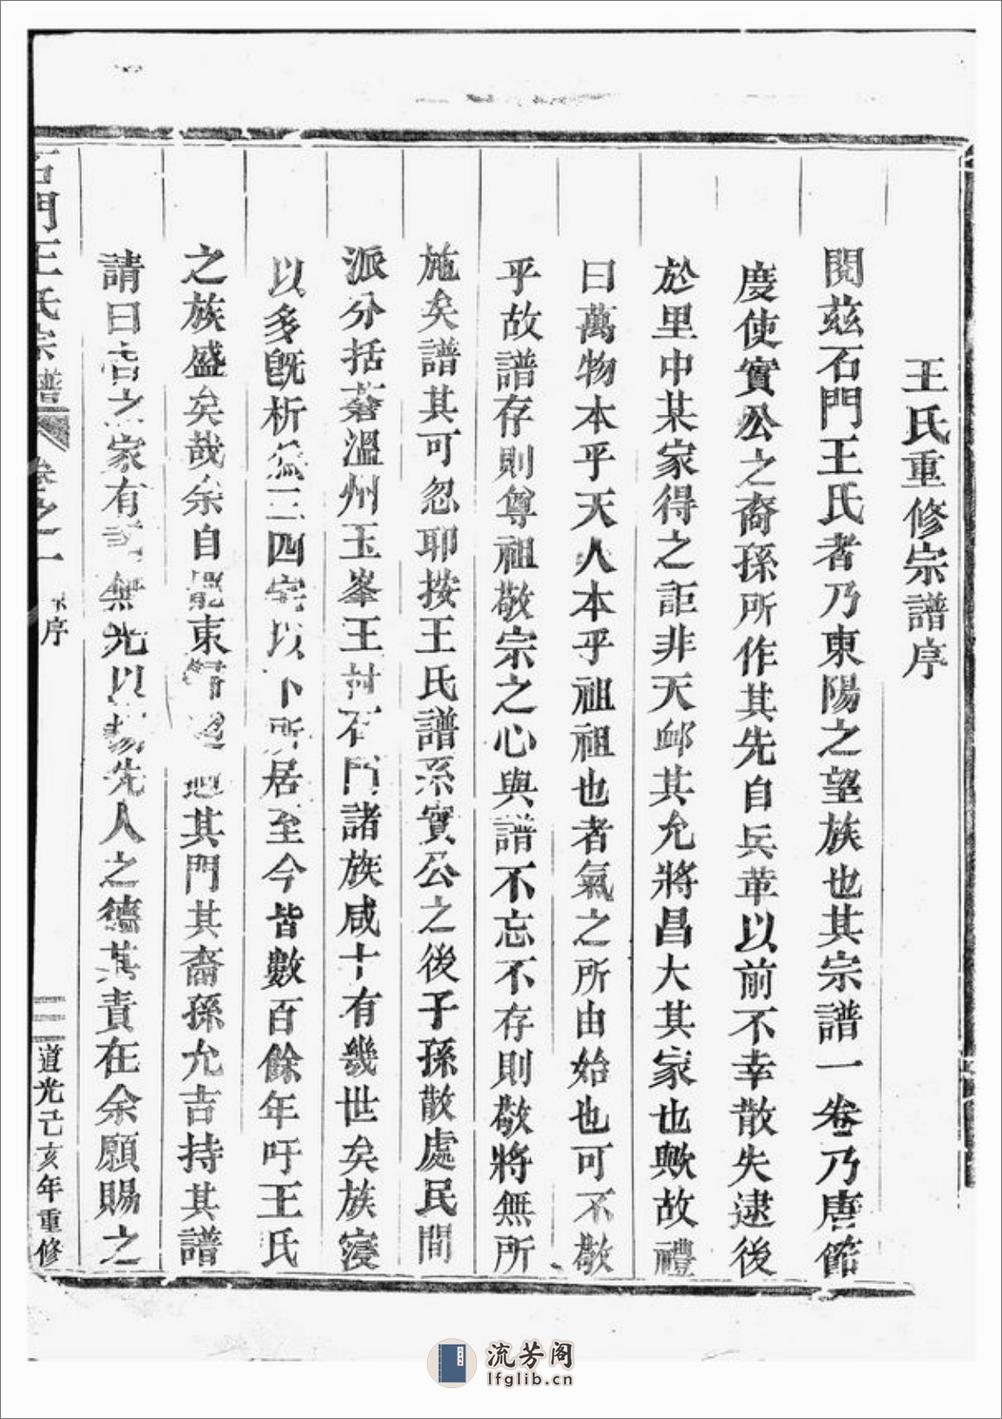 王氏重修宗譜序
閱茲石門王氏者乃東陽之望族也其宗譜一卷乃唐節
度使實公之裔孫所作其先自兵革以前不幸散失逮後
於里中某家得之詎非天郵其允將昌大其家也歟故禮
曰萬物本乎天人本乎祖祖也者氣之所由始也可不敬
乎故譜存則尊祖敬宗之心與譜不忘不存則敬將無所
施矣譜其可忽耶按王氏譜系實公之後子孫散處民間
派分括蒼溫州玉峯王村石門諸族咸十有幾世矣族寖
以多旣析為三四宅以卜所居至今皆數百餘年吁王氏
之族盛矣哉余自 東歸 過其門其裔孫允吉持其譜
請曰吉之家有譜無光以揚先人之德其責在余願賜之
石門王氏宗譜
卷之一
序
三
道光己亥年重修
流芳阁
lfglib.cn